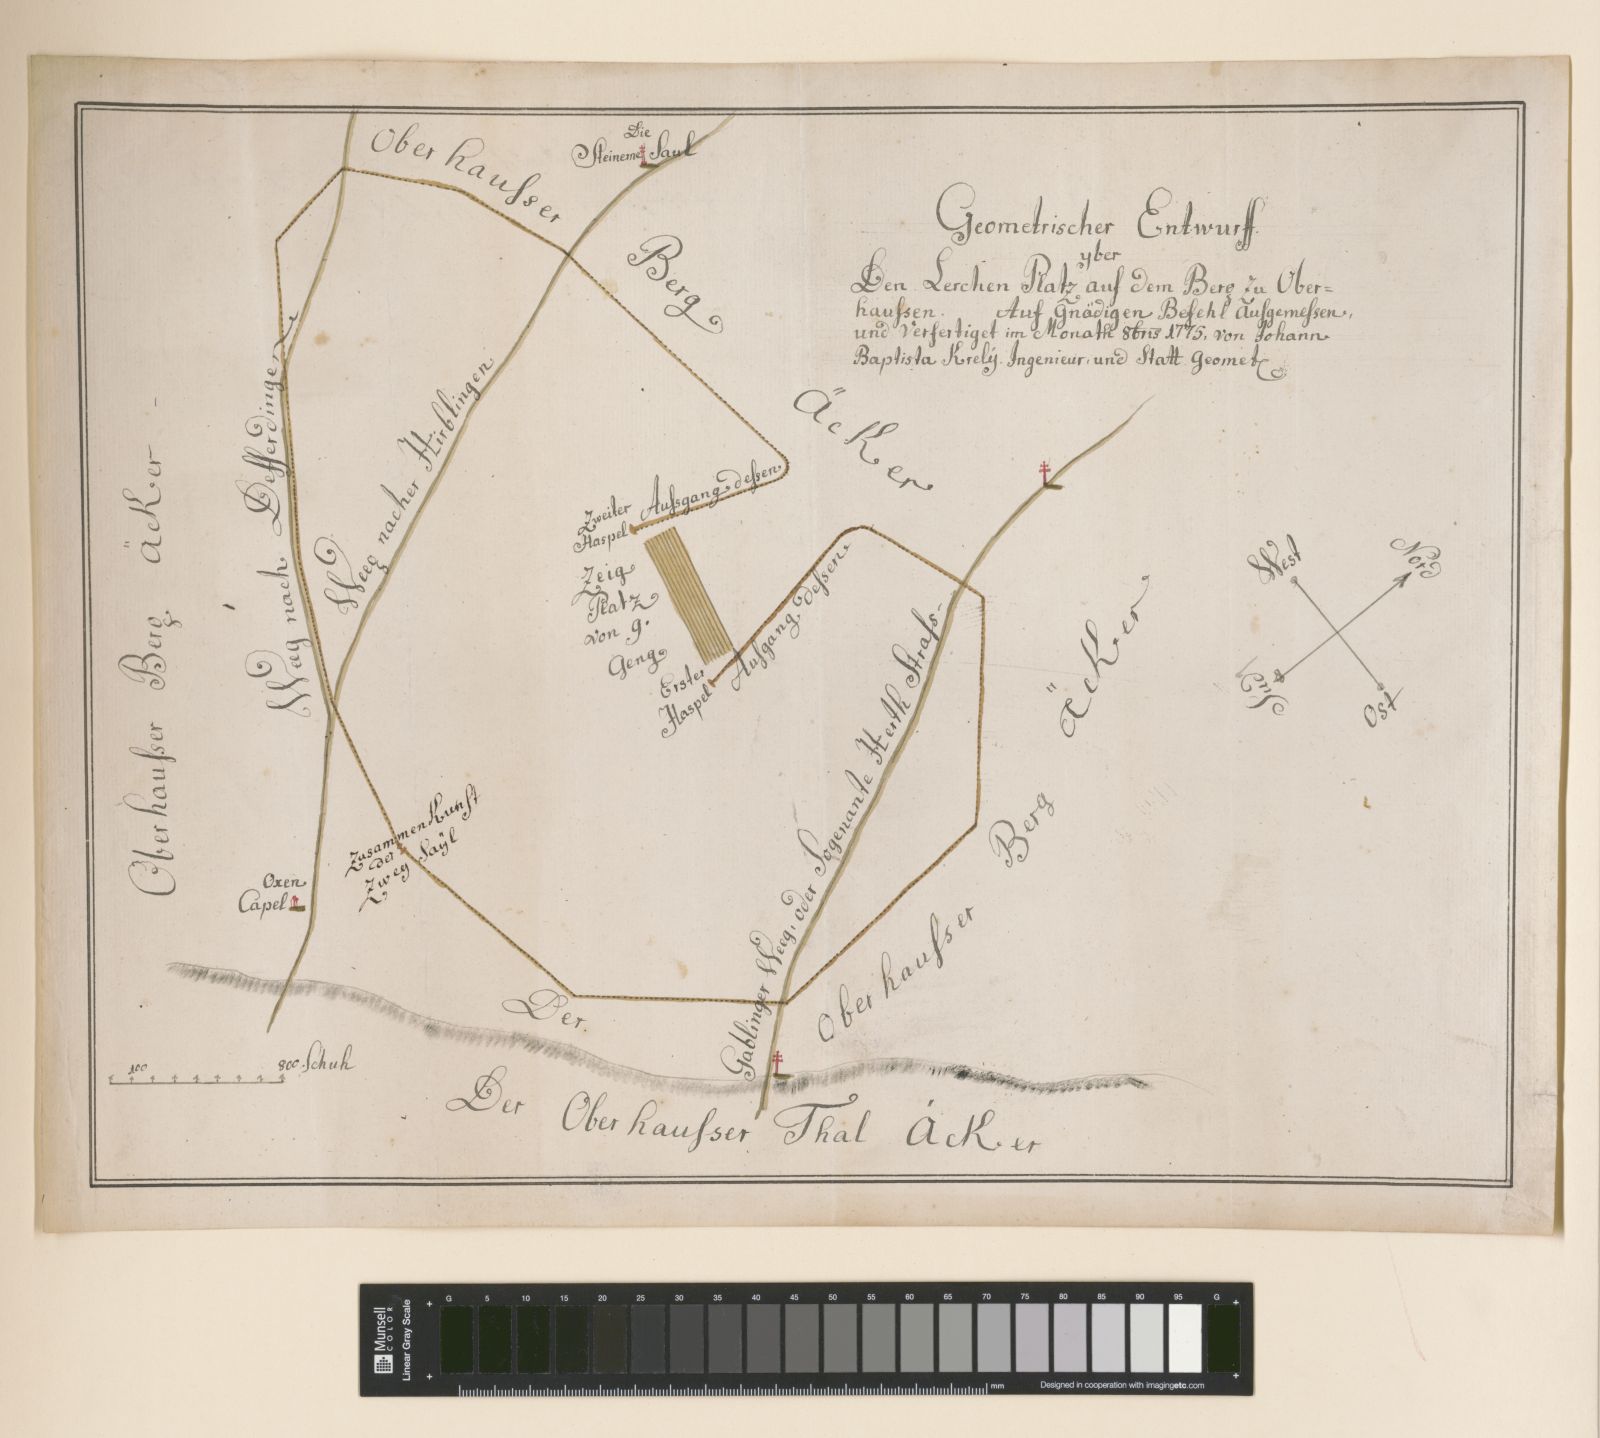 Geometrischer Entwurff.
yber
Den Lerchen Platz auf dem Berg zu Ober=
haussen. Auf Gnädigen Befehl Aufgemessen,
und Verfertiget im Monath 8bris 1775, von Johann
Baptista Krelÿ. Ingenieur, und Statt Geomet
Oberhausser
Berg
Äcker
Die
Steinerne Saul
Weg nach Defferdingen
Weeg nacher Hirblingen
Oberhausser Berg Äcker
Zweiter Aufsgang dessen
Haspel
Zeig
Platz
von 9.
Geng
Erster Aufgang dessen
Haspel
Gablinger Weeg, oder Sogenante Herth Strass
Oberhausser Berg Äcker
West
Nord
Sud
Ost
Zusammen Kunst
der
Zweÿ Saÿl
Oxen
Capel
100 800 Schuh
Der
Der Oberhausser Thal Äcker
Munsell
COLOR
Linear Gray Scale
G 5 10 15 20 25 30 35 40 45 50 55 60 65 70 75 80 85 90 95 G
mm
Designed in cooperation with imagingetc.com